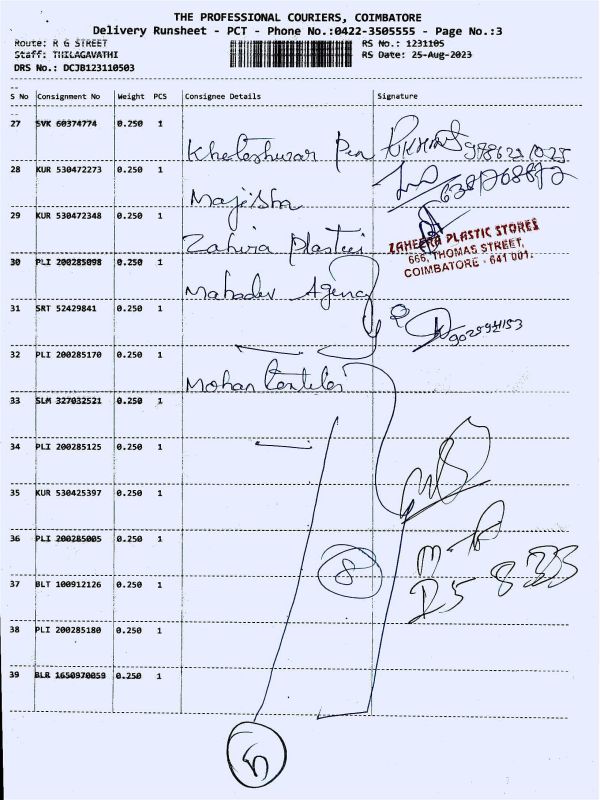 THE PROFESSIONAL COURIERS, COIMBATORE
Delivery Runsheet - PCT - Phone No.:0422-3505555 - Page No.:3
Route: R G STREET RS No.: 1231105
Staff: THILAGAVATHI RS Date: 25-Aug-2023
DRS No.: DCJB123110503
S No Consignment No Weight PCS Consignee Details Signature
27 SVK 60374774 0.250 1
Kheteshwar Pen
28 KUR 530472273 0.250 1
Majisha 6381768872
29 KUR 530472348 0.250 1
Zahira Plastic
ZAHEERA PLASTIC STORES
666, THOMAS STREET,
COIMBATORE - 641 001.
30 PLI 200285098 0.250 1
Mahadev Agency
31 SRT 52429841 0.250 1
32 PLI 200285170 0.250 1
Mohan
33 SLM 327032521 0.250 1
34 PLI 200285125 0.250 1
35 KUR 530425397 0.250 1
36 PLI 200285005 0.250 1
8
37 BLT 100912126 0.250 1
38 PLI 200285180 0.250 1
39 BLR 1650970059 0.250 1
5